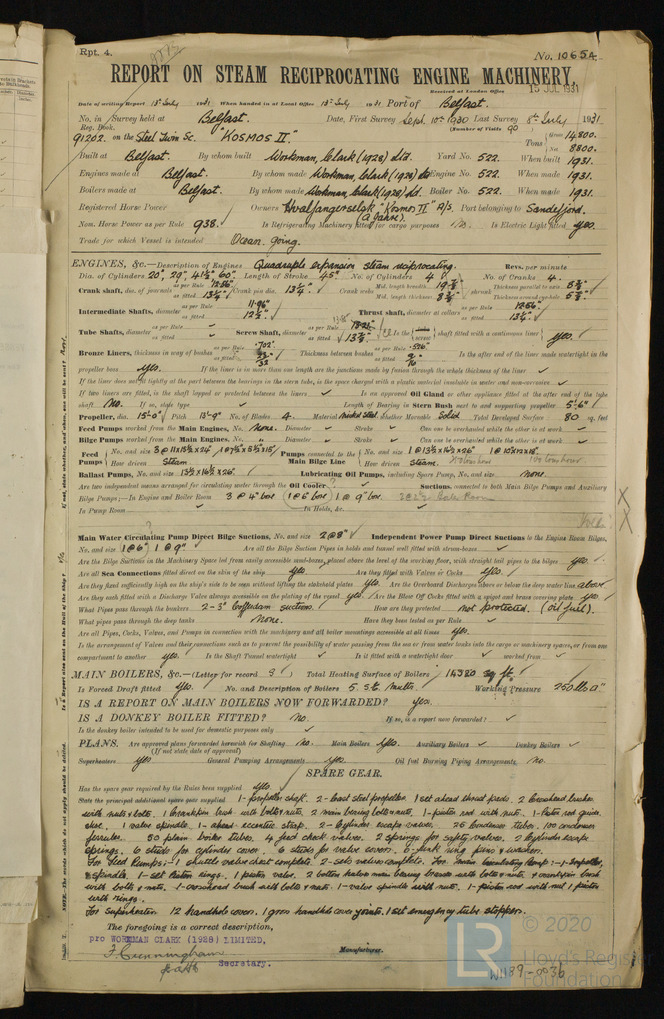 Rpt. 4.
No. 1065A.
REPORT ON STEAM RECIPROCATING ENGINE MACHINERY.
Received at London Office 15 JUL 1931
Date of writing Report 13th July 1931 When handed in at Local Office 13th July 1931 Port of Belfast.
No. in Survey held at Belfast. Date, First Survey Sept. 10th 1930 Last Survey 8th July 1931
Reg. Book. (Number of Visits 90
91202. on the Steel Twin Sc. "KOSMOS II". Tons Gross 14,800. Net 8800.
Built at Belfast. By whom built Workman, Clark (1928) Ltd. Yard No. 522. When built 1931.
Engines made at Belfast. By whom made Workman, Clark (1928) Ltd Engine No. 522. When made 1931.
Boilers made at Belfast. By whom made Workman, Clark (1928) Ltd. Boiler No. 522. When made 1931.
Registered Horse Power Owners Hvalfangerselsk "Kosmos II" A/S. (A. Jahre). Port belonging to Sandefjord.
Nom. Horse Power as per Rule 938. Is Refrigerating Machinery fitted for cargo purposes No. Is Electric Light fitted yes.
Trade for which Vessel is intended Ocean going.
ENGINES, &c.—Description of Engines Quadruple expansion steam reciprocating. Revs. per minute
Dia. of Cylinders 20", 29", 41½" 60" Length of Stroke 45" No. of Cylinders 4 No. of Cranks 4.
Crank shaft, dia. of journals as per Rule as fitted 13¼" Crank pin dia. 13¼" Crank webs Mid. length breadth Mid. length thickness Thickness parallel to axis Thickness around eyehole
Intermediate Shafts, diameter as per Rule 11.96 as fitted 12½" Thrust shaft, diameter at collars as per Rule 12.56" as fitted 13¼"
Tube Shafts, diameter as per Rule as fitted Screw Shaft, diameter as per Rule as fitted 13½" Is the shaft fitted with a continuous liner yes.
Bronze Liners, thickness in way of bushes as per Rule .702" as fitted Thickness between bushes as per Rule .526" as fitted Is the after end of the liner made watertight in the
propeller boss yes. If the liner is in more than one length are the junctions made by fusion through the whole thickness of the liner
If the liner does not fit tightly at the part between the bearings in the stern tube, is the space charged with a plastic material insoluble in water and non-corrosive
If two liners are fitted, is the shaft lapped or protected between the liners Is an approved Oil Gland or other appliance fitted at the after end of the tube
shaft No. If so, state type Length of Bearing in Stern Bush next to and supporting propeller 5'-6"
Propeller, dia. 15'-0" Pitch 13'-9" No. of Blades 4 Material Nickel Steel whether Moveable Solid Total Developed Surface 80 sq. feet
Feed Pumps worked from the Main Engines, No. None. Diameter Stroke Can one be overhauled while the other is at work
Bilge Pumps worked from the Main Engines, No. " Diameter Stroke Can one be overhauled while the other is at work
Feed Pumps No. and size 3 @ 11x15½x24" How driven Steam Pumps connected to the Main Bilge Line No. and size 1 @ 13½x16½x26" 1 @ 10"x12"x18" How driven steam.
Ballast Pumps, No. and size 13½x16½x26". Lubricating Oil Pumps, including Spare Pump, No. and size none.
Are two independent means arranged for circulating water through the Oil Cooler Suctions, connected to both Main Bilge Pumps and Auxiliary
Bilge Pumps;—In Engine and Boiler Room 3 @ 4" bore (1 @ 6" bore) 1 @ 9" bore.
In Pump Room In Holds, &c.
Main Water Circulating Pump Direct Bilge Suctions, No. and size 2 @ 8" Independent Power Pump Direct Suctions to the Engine Room Bilges,
No. and size 1 @ 6" 1 @ 9". Are all the Bilge Suction Pipes in holds and tunnel well fitted with strum-boxes
Are the Bilge Suctions in the Machinery Space led from easily accessible mud-boxes, placed above the level of the working floor, with straight tail pipes to the bilges yes.
Are all Sea Connections fitted direct on the skin of the ship yes Are they fitted with Valves or Cocks yes.
Are they fixed sufficiently high on the ship's side to be seen without lifting the stokehold plates yes Are the Overboard Discharges above or below the deep water line above.
Are they each fitted with a Discharge Valve always accessible on the plating of the vessel yes Are the Blow Off Cocks fitted with a spigot and brass covering plate yes.
What Pipes pass through the bunkers 2-3" Cofferdam suctions. How are they protected not protected. (oil fuel).
What pipes pass through the deep tanks None. Have they been tested as per Rule
Are all Pipes, Cocks, Valves, and Pumps in connection with the machinery and all boiler mountings accessible at all times yes.
Is the arrangement of Valves and their connections such as to prevent the possibility of water passing from the sea or from water tanks into the cargo or machinery spaces, or from one
compartment to another yes. Is the Shaft Tunnel watertight Is it fitted with a watertight door worked from
MAIN BOILERS, &c.—(Letter for record S) Total Heating Surface of Boilers 14380 sq ft.
Is Forced Draft fitted yes. No. and Description of Boilers 5 S.E. Multr. Working Pressure 250 lb □".
IS A REPORT ON MAIN BOILERS NOW FORWARDED? yes.
IS A DONKEY BOILER FITTED? No. If so, is a report now forwarded?
Is the donkey boiler intended to be used for domestic purposes only
PLANS. Are approved plans forwarded herewith for Shafting No. Main Boilers yes. Auxiliary Boilers Donkey Boilers
(If not state date of approval)
Superheaters yes. General Pumping Arrangements yes. Oil fuel Burning Piping Arrangements, no.
SPARE GEAR.
Has the spare gear required by the Rules been supplied yes.
State the principal additional spare gear supplied 1- propeller shaft. 2- Cast steel propeller. 1 set ahead thrust pads. 2 Crosshead bushes
with nuts & bolts. 1 Crankpin bush with bolts & nuts. 2 main bearing bolts & nuts. 1- piston rod with nuts. 1- Piston rod guide
shoe. 1 valve spindle. 1- ahead eccentric strap. 2- Cylinder escape valves. 25 Condenser tubes. 100 condenser
ferrules. 50 plain boiler tubes. 4 feed check valves. 2 springs for safety valves. 2 Cylinder escape
springs. 6 studs for cylinder cover. 6 studs for valve covers.
For Feed Pumps:- 1 shuttle valve chest complete. 2- sets valves complete. For main Circulating Pump:- 1- Impeller
& spindle. 1- set piston rings. 1 piston valve. 2 bottom halves main bearing brasses with bolts & nuts.
with bolts & nuts. 1- crosshead bush with bolts & nuts. 1- valve spindle with nuts. 1- piston rod with nut 1 piston
with rings.
For Superheater 12 handhole covers. 1 gross handhole cover joints. 1 set emergency tube stoppers.
The foregoing is a correct description,
pro WORKMAN CLARK (1928) LIMITED,
F. Cunningham
Secretary. Manufacturer.
© 2020
LR Lloyd's Register
Foundation
W1189-0036